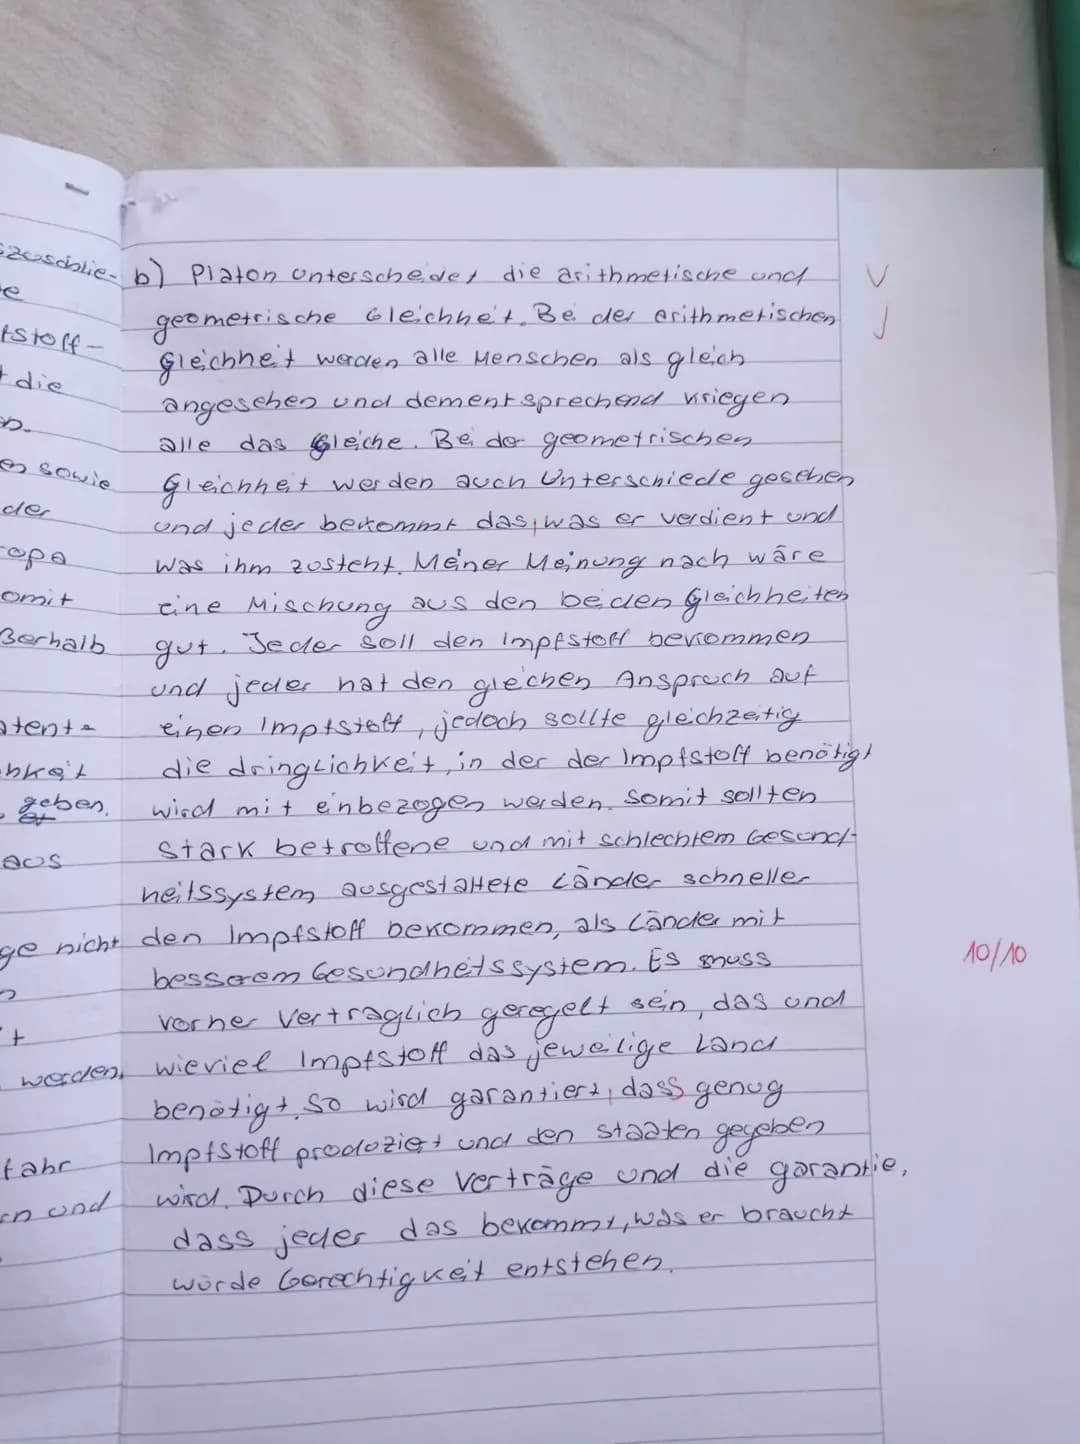 szuschlie-
e
fstoff-
die
n.
en sowie
der
ropa
omit
ßerhalb
atent-
geben.
aus
ge nicht
t
werden,
fahr
en und
b) Platon unterscheidet die arithmetische und
geometrische Gleichheit. Bei der arithmetischen
Gleichheit werden alle Menschen als gleich
angesehen und dementsprechend kriegen
alle das Gleiche. Bei der geometrischen
Gleichheit werden auch Unterschiede gesehen
und jeder bekommt das, was er verdient und
was ihm zusteht. Meiner Meinung nach wäre
eine Mischung aus den beiden Gleichheiten
gut. Jeder soll den Impfstoff bekommen
und jeder hat den gleichen Anspruch auf
einen Impfstoff, jedoch sollte gleichzeitig
die dringlichkeit, in der der Impfstoff benötigt
wird mit einbezogen werden. Somit sollten
stark betroffene und mit schlechtem Gesund-
heitssystem ausgestattete Länder schneller
den Impfstoff bekommen, als Länder mit
besserem Gesundheitssystem. Es muss
vorher vertraglich geregelt sein, das und
wieviel Impfstoff das jeweilige Land
benötigt. So wird garantiert, dass genug
Impfstoff produziert und den staaten gegeben
wird. Durch diese Verträge und die garantie,
dass jeder das bekommt, was er braucht
würde Gerechtigkeit entstehen.
10/10